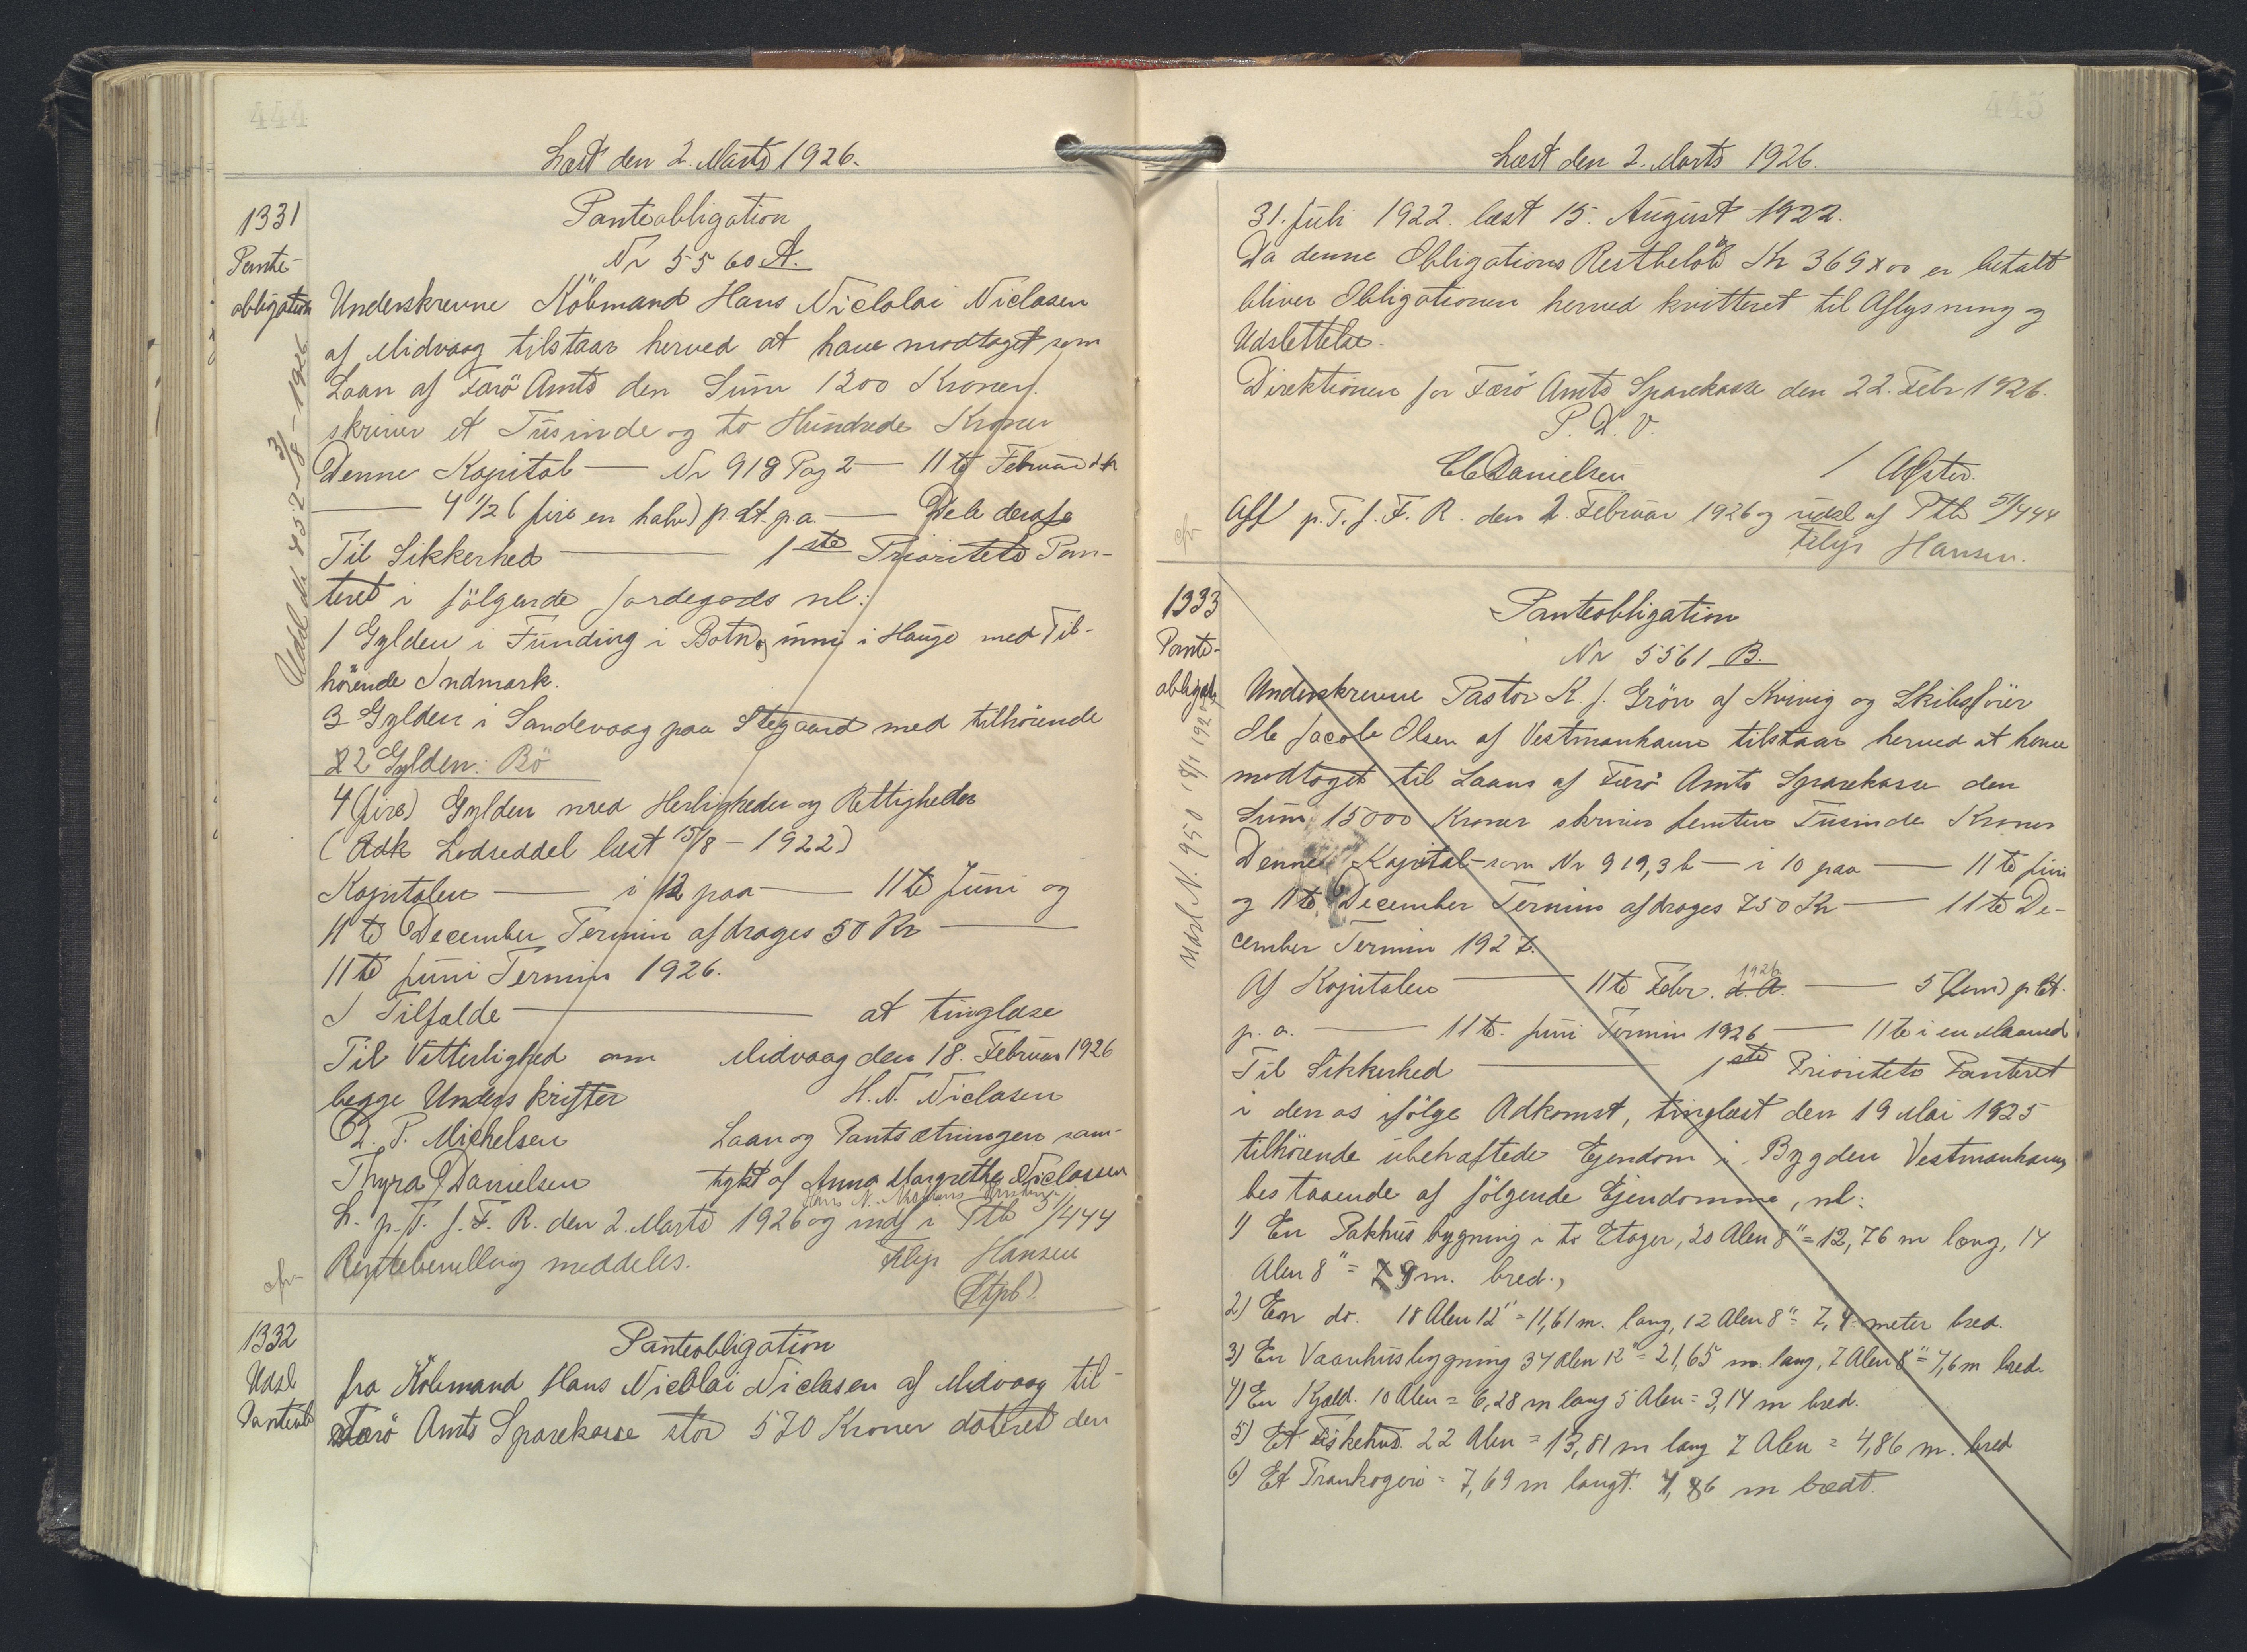 444
Læst den 2. Marts 1926.
1331
Pante-
obligation
Udsl. Nr 452 31/8 - 1926
Panteobligation
Nr 5560 A.
Underskrevne Köbmand Hans Niclolai Niclasen
af Midvaag tilstaar herved at have modtaget som
Laan af Færö Amts den Sum 1200 Kroner
skriver et Tusinde og to Hundrede Kroner
Denne Kapital — Nr 918 Pag 2 — 11te Februar d.A
— 4 1/2 (fire en halv) p.Ct. p.a. — Dele deraf
Til Sikkerhed — 1ste Prioritets Pan-
teret i fölgende Jordegods nl:
1 Gylden i Funding i Botn og inni i Haugo med Til-
hörende Indmark.
3 Gylden i Sandevaag paa Stegaard med tilhörende
22 Gylden: Bö
4 (fire) Gylden med Herligheder og Rettigheder
(Adk Lodseddel læst 15/8 - 1922)
Kapitalen — i 12 paa — 11te Juni og
11te December Termin afdrages 50 Kr —
11te Juni Termin 1926.
I Tilfælde — at tinglæse
Til Vitterlighed om Midvaag den 18. Februar 1926
begge Underskrifter H. N. Niclasen
D. P. Michelsen Laan og Pantsætningen sam-
Thyra Danielsen tykt af Anna Margrethe Niclasen
L. p. T. f. F. R. den 2. Marts 1926 og indf i Ptb 5/444
Rentebevilling meddeles. Filip Hansen
(Stpb)
1332
Udsl
Panteobl
Panteobligation
fra Köbmand Hans Nicolai Niclasen af Midvaag til-
Færö Amts Sparekasse stor 570 Kroner dateret den
445
Læst den 2. Marts 1926.
31. Juli 1922. læst 15. August 1922.
Da denne Obligations Restbelöb Kr 369 x 00 er betalt
bliver Obligationen herved kvitteret til Aflysning og
Udslettelse.
Direktionen for Færö Amts Sparekasse den 22. Febr 1926.
P. D. V.
C Danielsen /
Afl p. T. f. F. R. den 2. Februar 1926 og udsl af Ptb 5/444
Filip Hansen.
1333
Pante-
obligat
Udsl N. 950
Panteobligation
Nr 5561 B.
Underskrevne Pastor K. J. Grön af Kvivig og Skibsförer
Ole Jacob Olsen af Vestmanhavn tilstaar herved at have
modtaget til Laans af Færö Amts Sparekasse den
Sum 15000 Kroner skriver femten Tusinde Kroner
Denne Kapital som Nr 919, 3 b — i 10 paa — 11te Juni
og 11te December Termin afdrages 750 Kr — 11te De-
cember Termin 1927.
Af Kapitalen — 11te Febr. d. A. 1926. — 5 (fem) p Ct.
p. a. — 11te. Juni Termin 1926 — 11te i en Maaned
Til Sikkerhed — 1ste Prioritets Panteret
i den os ifölge Adkomst, tinglæst den 19 Mai 1925
tilhörende ubehæftede Ejendom i Bygden Vestmanhavn
bestaaende af fölgende Ejendomme, nl:
1) En Pakhusbygning i to Etager, 20 Alen 8" = 12,76 m lang, 14
Alen 8" = 9 m. bred.,
2) En do. 18 Alen 12" = 11,61 m. lang, 12 Alen 8" = 7,4 meter bred.
3) En Vaanhusbygning 34 Alen 12" = 21,65 m. lang, 7 Alen 8" = 4,6 m bred.
4) En Kjæld. 10 Alen = 6,28 m lang 5 Alen = 3,14 m bred.
5) Et Fiskehus. 22 Alen = 13,81 m lang 7 Alen = 4,86 m. bred
6) Et Trankogeri = 7,69 m langt. 4,86 m bredt.